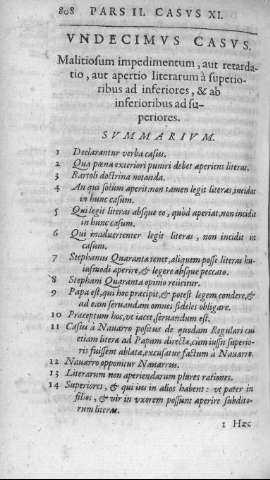 808 PARS II. CASVS XI.
VNDECIMVS CASVS.
Malitiosum impedimentum, aut retarda-
tio, aut apertio literarum à superio-
ribus ad inferiores, & ab
inferioribus ad su-
periores.
SVMMARIVM.
1 Declarantur verba casus.
2 Qua pœna exteriori puniri debet aperiens literas.
3 Bartoli doctrina notanda.
4 An qui solùm aperit: non tamen legit literas, incidat
in hunc casum.
5 Qui legit literas absque eo, quòd aperiat, non incidit
in hunc casum.
6 Qui inaduertenter legit literas, non incidit in
casum.
7 Stephanus Quaranta tenet, aliquem posse literas hu-
iusmodi aperire, & legere absque peccato.
8 Stephani Quaranta opinio reiicitur.
9 Papa est, qui hoc præcipit, & potest legem condere, &
ad eam seruandam omnes fideles obligare.
10 Præceptum hoc, vt iacet, seruandum est.
11 Casus à Nauarro positus de quodam Regulari cui
etiam litera ad Papam directa, cùm iussu superio-
ris fuissent ablata, excusatur factum à Nauarro.
12 Nauarro opponitur Nauarrus.
13 Literarum non aperiendarum plures rationes.
14 Superiores, & qui ius in alios habent: vt pater in
filios, & vir in vxorem possunt aperire subdito-
rum literas.
1 Hæc